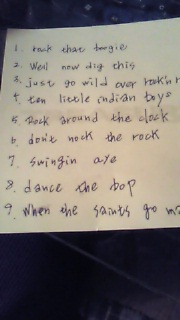 1. rock that boogie
2. Well now dig this
3. Just go wild over rock'n r
4. ten little indian boys
5. Rock around the clock
6. don't nock the rock
7. Swingin aye
8. dance the bop
9. When the saints go ma